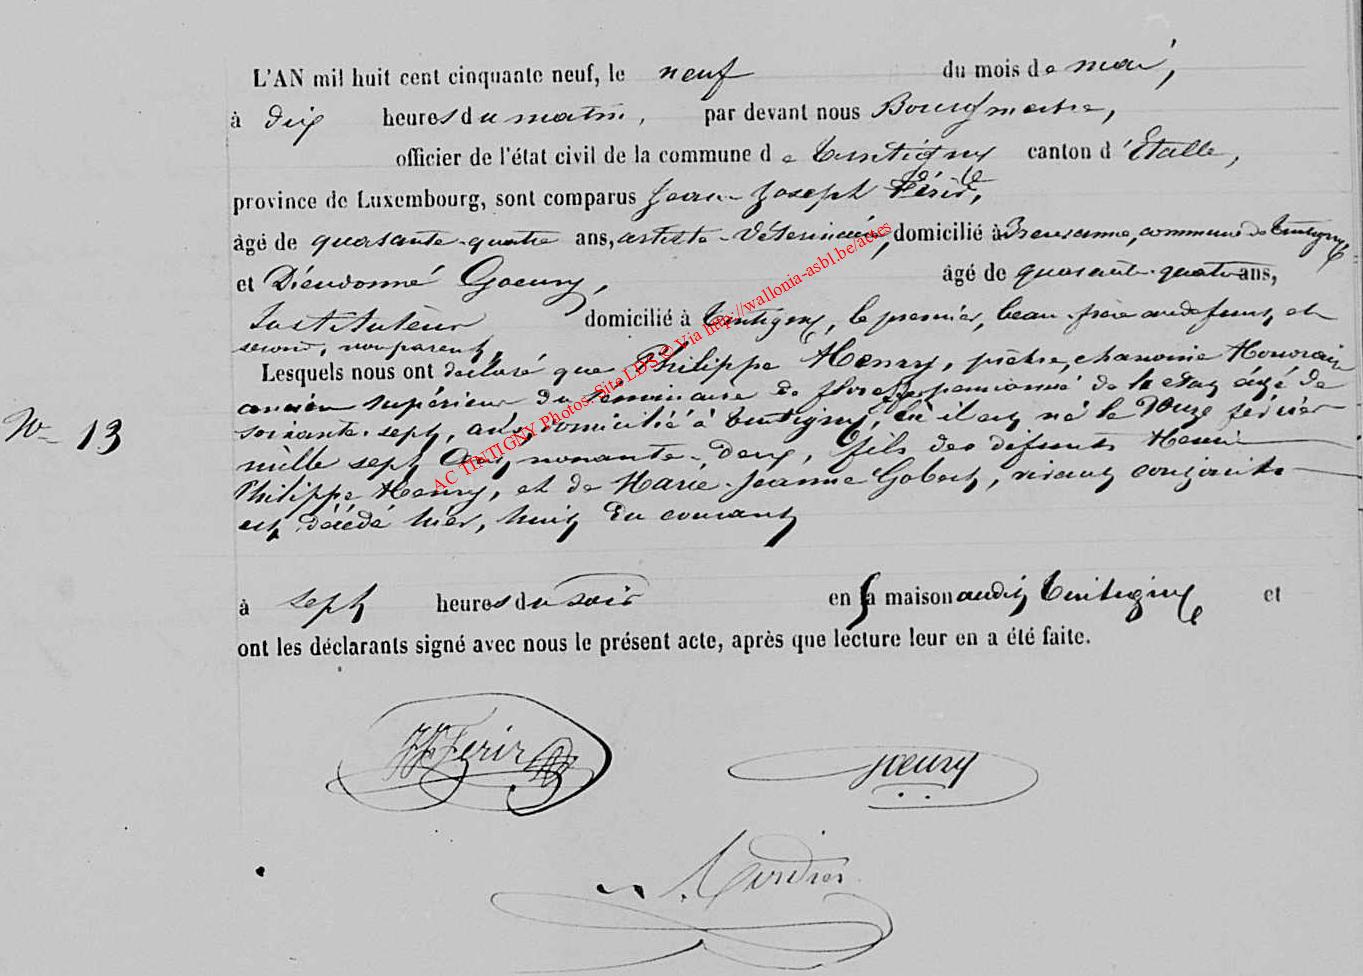 L'AN mil huit cent cinquante neuf, le neuf du mois de mai,
à dix heures du matin, par devant nous Bourgmestre,
officier de l'état civil de la commune de Tintigny canton d'Etalle,
province de Luxembourg, sont comparus Jean-Joseph Férir,
âgé de quarante-quatre ans, artiste-vétérinaire, domicilié à commune de Tintigny
et Dieudonné Goeury, âgé de quarante-quatre ans,
Instituteur domicilié à Tintigny, le premier, beau-frère au defunt, et
second, non parent,
Lesquels nous ont declaré que Philippe Henry, prêtre, chanoine Honorair
ancien supérieur du seminaire de floreffe pensionné de letat, âgé de
soixante-sept, ans, domicilié à Tintigny, où il est né le douze février
N° 13
mille sept cent nonante-deux, fils des défunts Henri
Philippe Henry, et de Marie-Jeanne Gobert, vivant conjoints
est décédé hier, huit du courant
à sept heures du soir en sa maison audit Tintigny et
ont les déclarants signé avec nous le présent acte, après que lecture leur en a été faite.
JJ Ferir
Goeury
AC TINTIGNY Photos: Site LDS © Via http://wallonia-asbl.be/actes